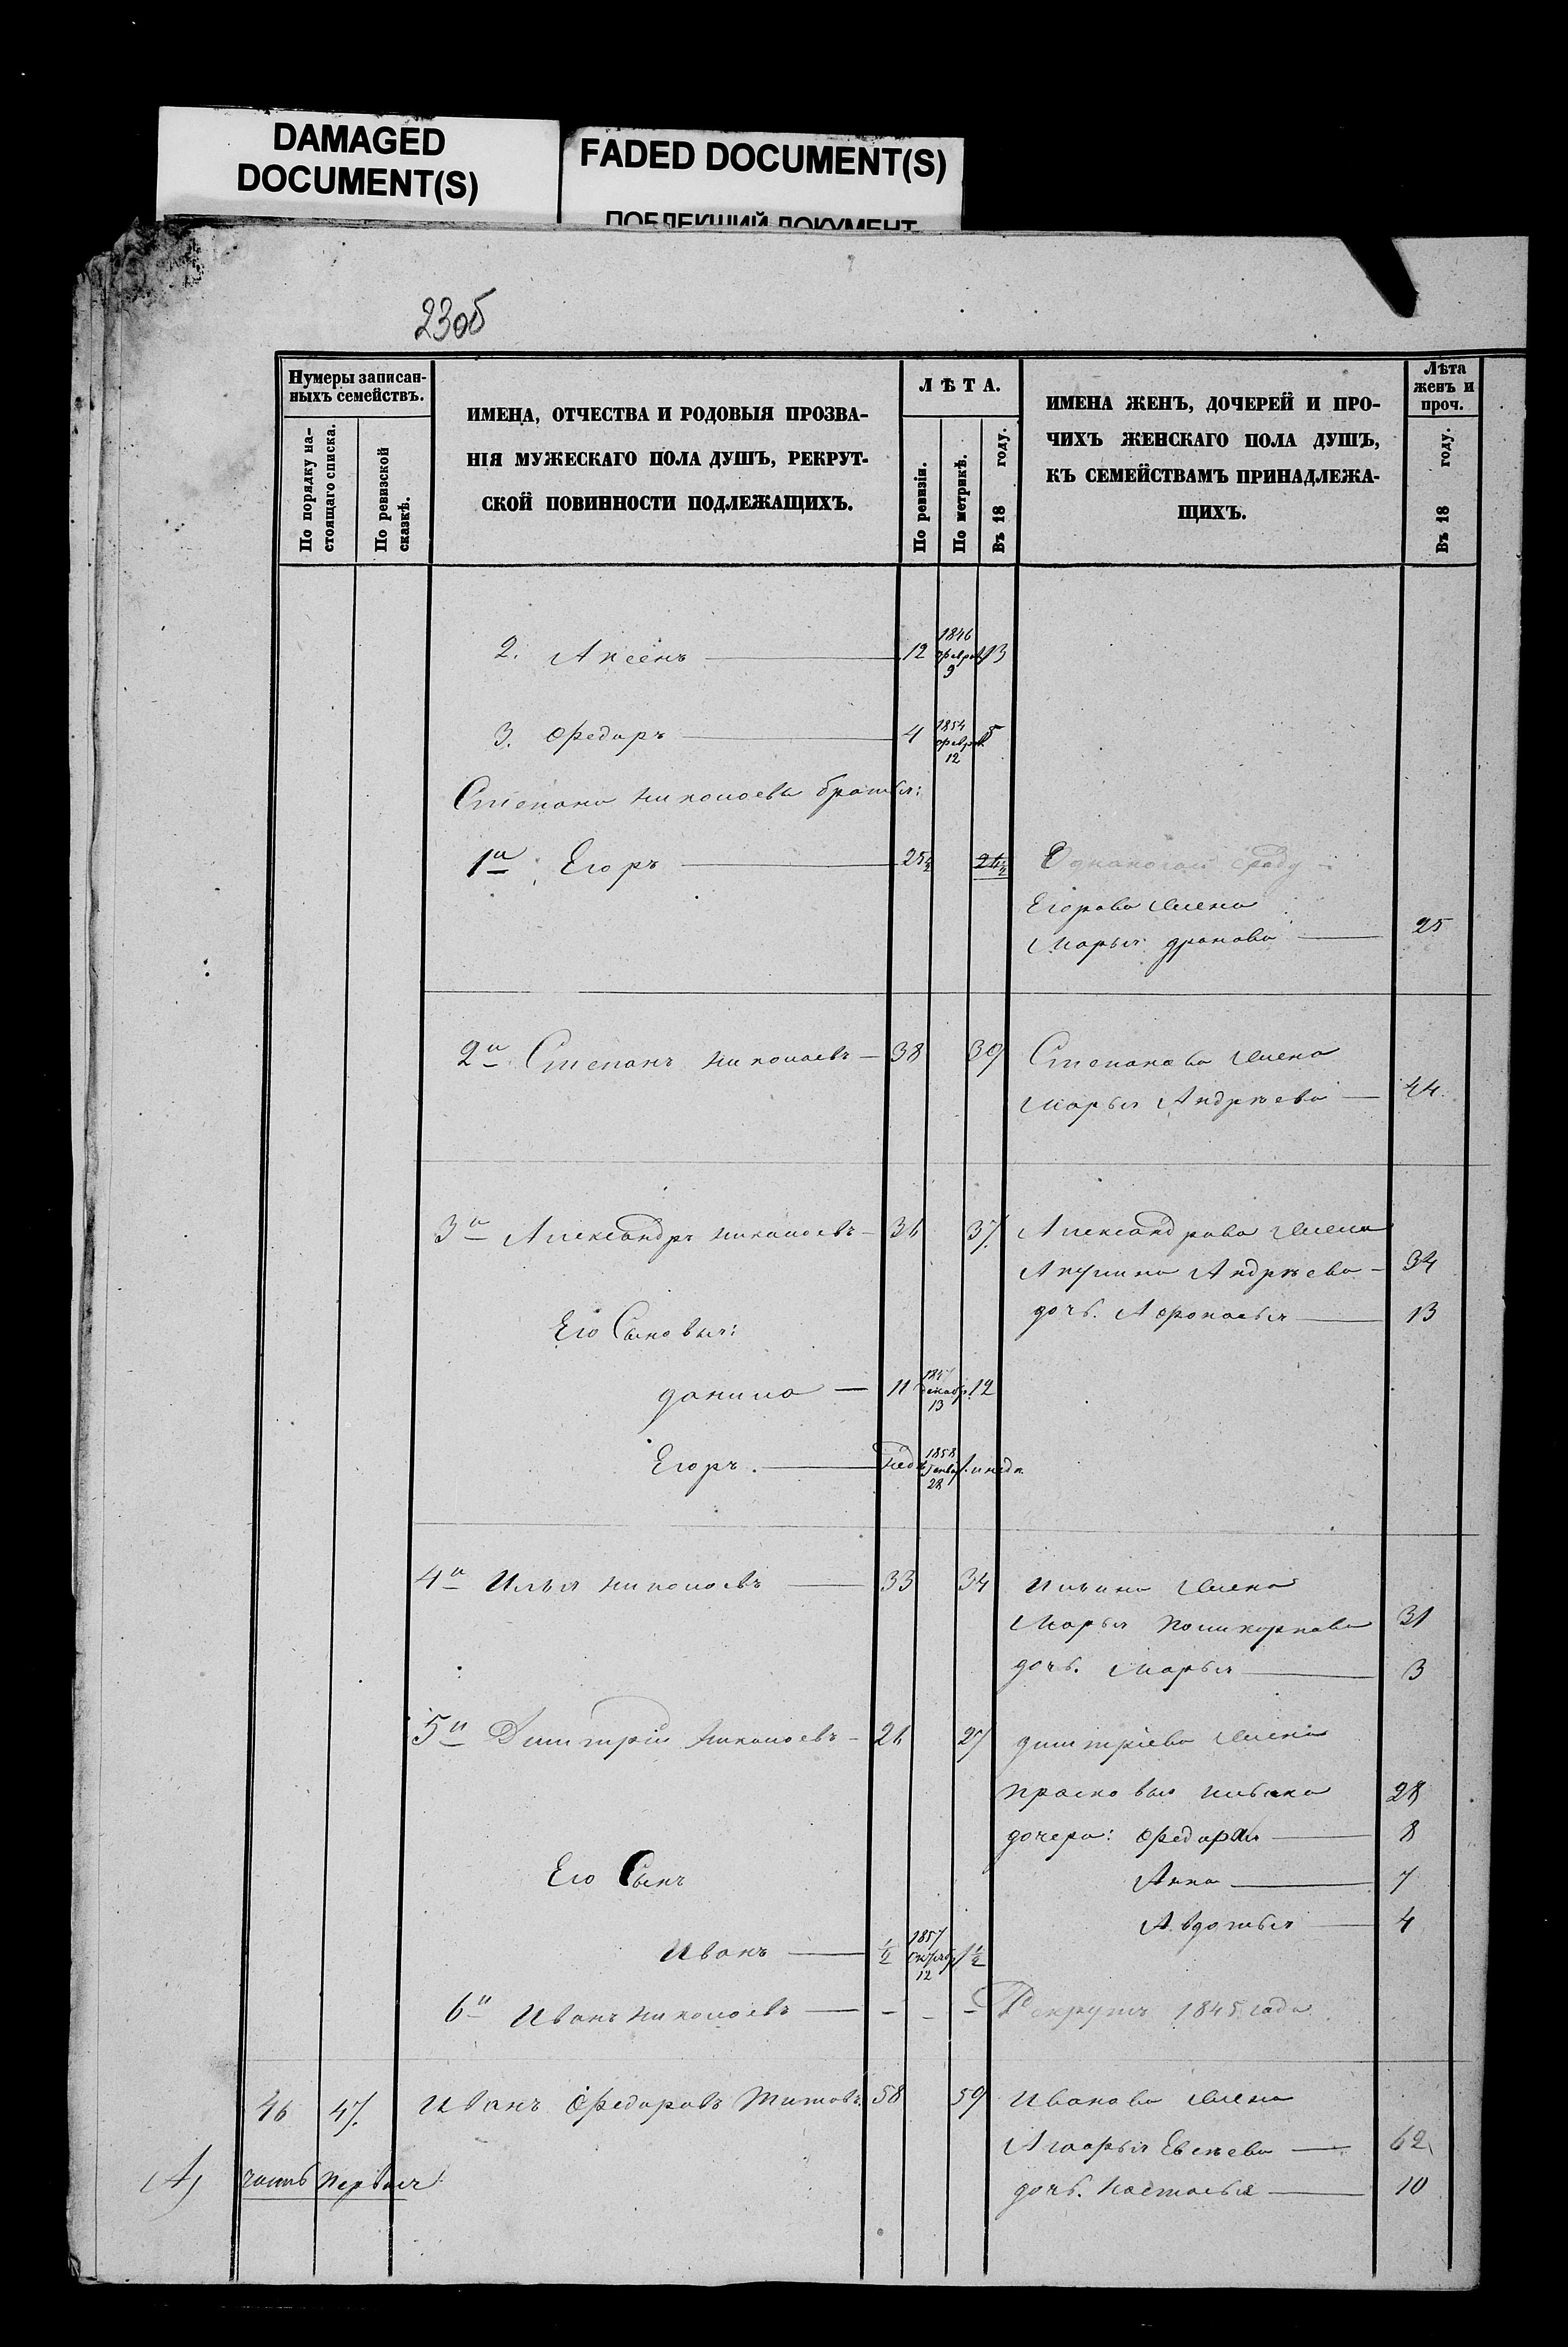 DAMAGED
DOCUMENT(S)
FADED DOCUMENT(S)
ПОБЛЕКШИЙ ДОКУМЕНТ
23об
Нумеры записан-
ныхъ семействъ.
По порядку на-
стоящаго списка.
По ревизской
сказкѣ.
ИМЕНА, ОТЧЕСТВА И РОДОВЫЯ ПРОЗВА-
НІЯ МУЖЕСКАГО ПОЛА ДУШЪ, РЕКРУТ-
СКОЙ ПОВИННОСТИ ПОДЛЕЖАЩИХЪ.
ЛѢТА.
По ревизіи.
По метрикѣ.
Въ 18 году.
ИМЕНА ЖЕНЪ, ДОЧЕРЕЙ И ПРО-
ЧИХЪ ЖЕНСКАГО ПОЛА ДУШЪ,
КЪ СЕМЕЙСТВАМЪ ПРИНАДЛЕЖА-
ЩИХЪ.
Лѣта
женъ и
проч.
Въ 18 году.
2. Аксенъ 12 1846 феврал 9 13
3. Федоръ 4 1854 феврал. 12 5
Степана Николаева братья:
1й Егоръ 25½
Егорова жена
Марья 25
2й Степанъ Николаевъ 38 39 Степанова жена
Марья Андрѣева 44
3й Александръ Николаевъ 36 37 Александрова жена
Акулина Андрѣева 34
дочь. Афонасья 13
Его Сыновья:
Данила 11 декабр 13 12
Егоръ 1858 Генвар 28
4й Илья Николаевъ 33 34 Ильина жена
Марья Поликарпова 31
дочь. Марья 3
5й Димитрій Николаевъ 26 27 Димитріева жена
Прасковья Ильина 28
дочери: Федора 8
Его Сынъ Анна 7
Авдотья 4
Иванъ ½ 1857 12 1½
6й Иванъ Николаевъ - - - Рекрутъ 1845 года
46 47. Иванъ Федоровъ Титовъ 58 59 Иванова жена
Евсѣева 62
часть первая
дочь. Настасья 10